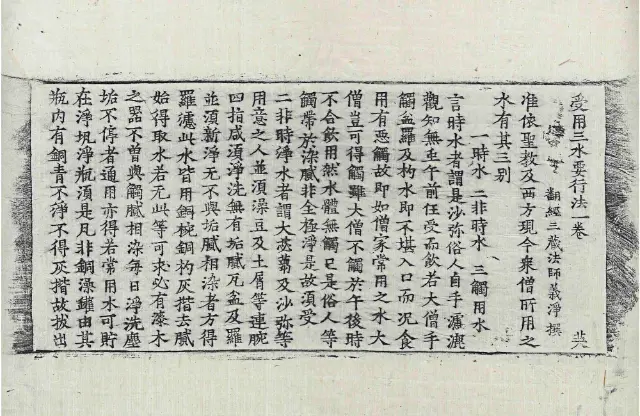 受用三水要行法一卷
翻經三藏法師義淨撰
准依聖教及西方現今衆僧所用之
水有其三别
一時水 二非時水 三觸用水
言時水者謂是沙弥俗人自手濾漉
觀知無虫午前任受而飲若大僧手
觸盆羅及杓水即不堪入口而况食
用有惡觸故即如僧家常用之水大
僧豈可得觸雖大僧不觸於午後時
不合飲用然水體無觸已是俗人等
觸帶於染膩非全極淨是故須受
二非時淨水者謂大苾蒭及沙弥等
用意之人並須澡豆及土屑等連腕
四指咸須淨洗無有垢膩瓦盆及羅
並須新淨无不與垢膩相染者方得
羅濾此水皆用銅椀銅杓灰揩去膩
始得取水若无此等可求必有漆木
之器不曾與觸膩相染每日淨洗塵
垢不停者通用亦得若常用水可貯
在淨瓨淨瓶須是凡非銅漆鑵由其
瓶内有銅青不淨不得灰揩故拔出